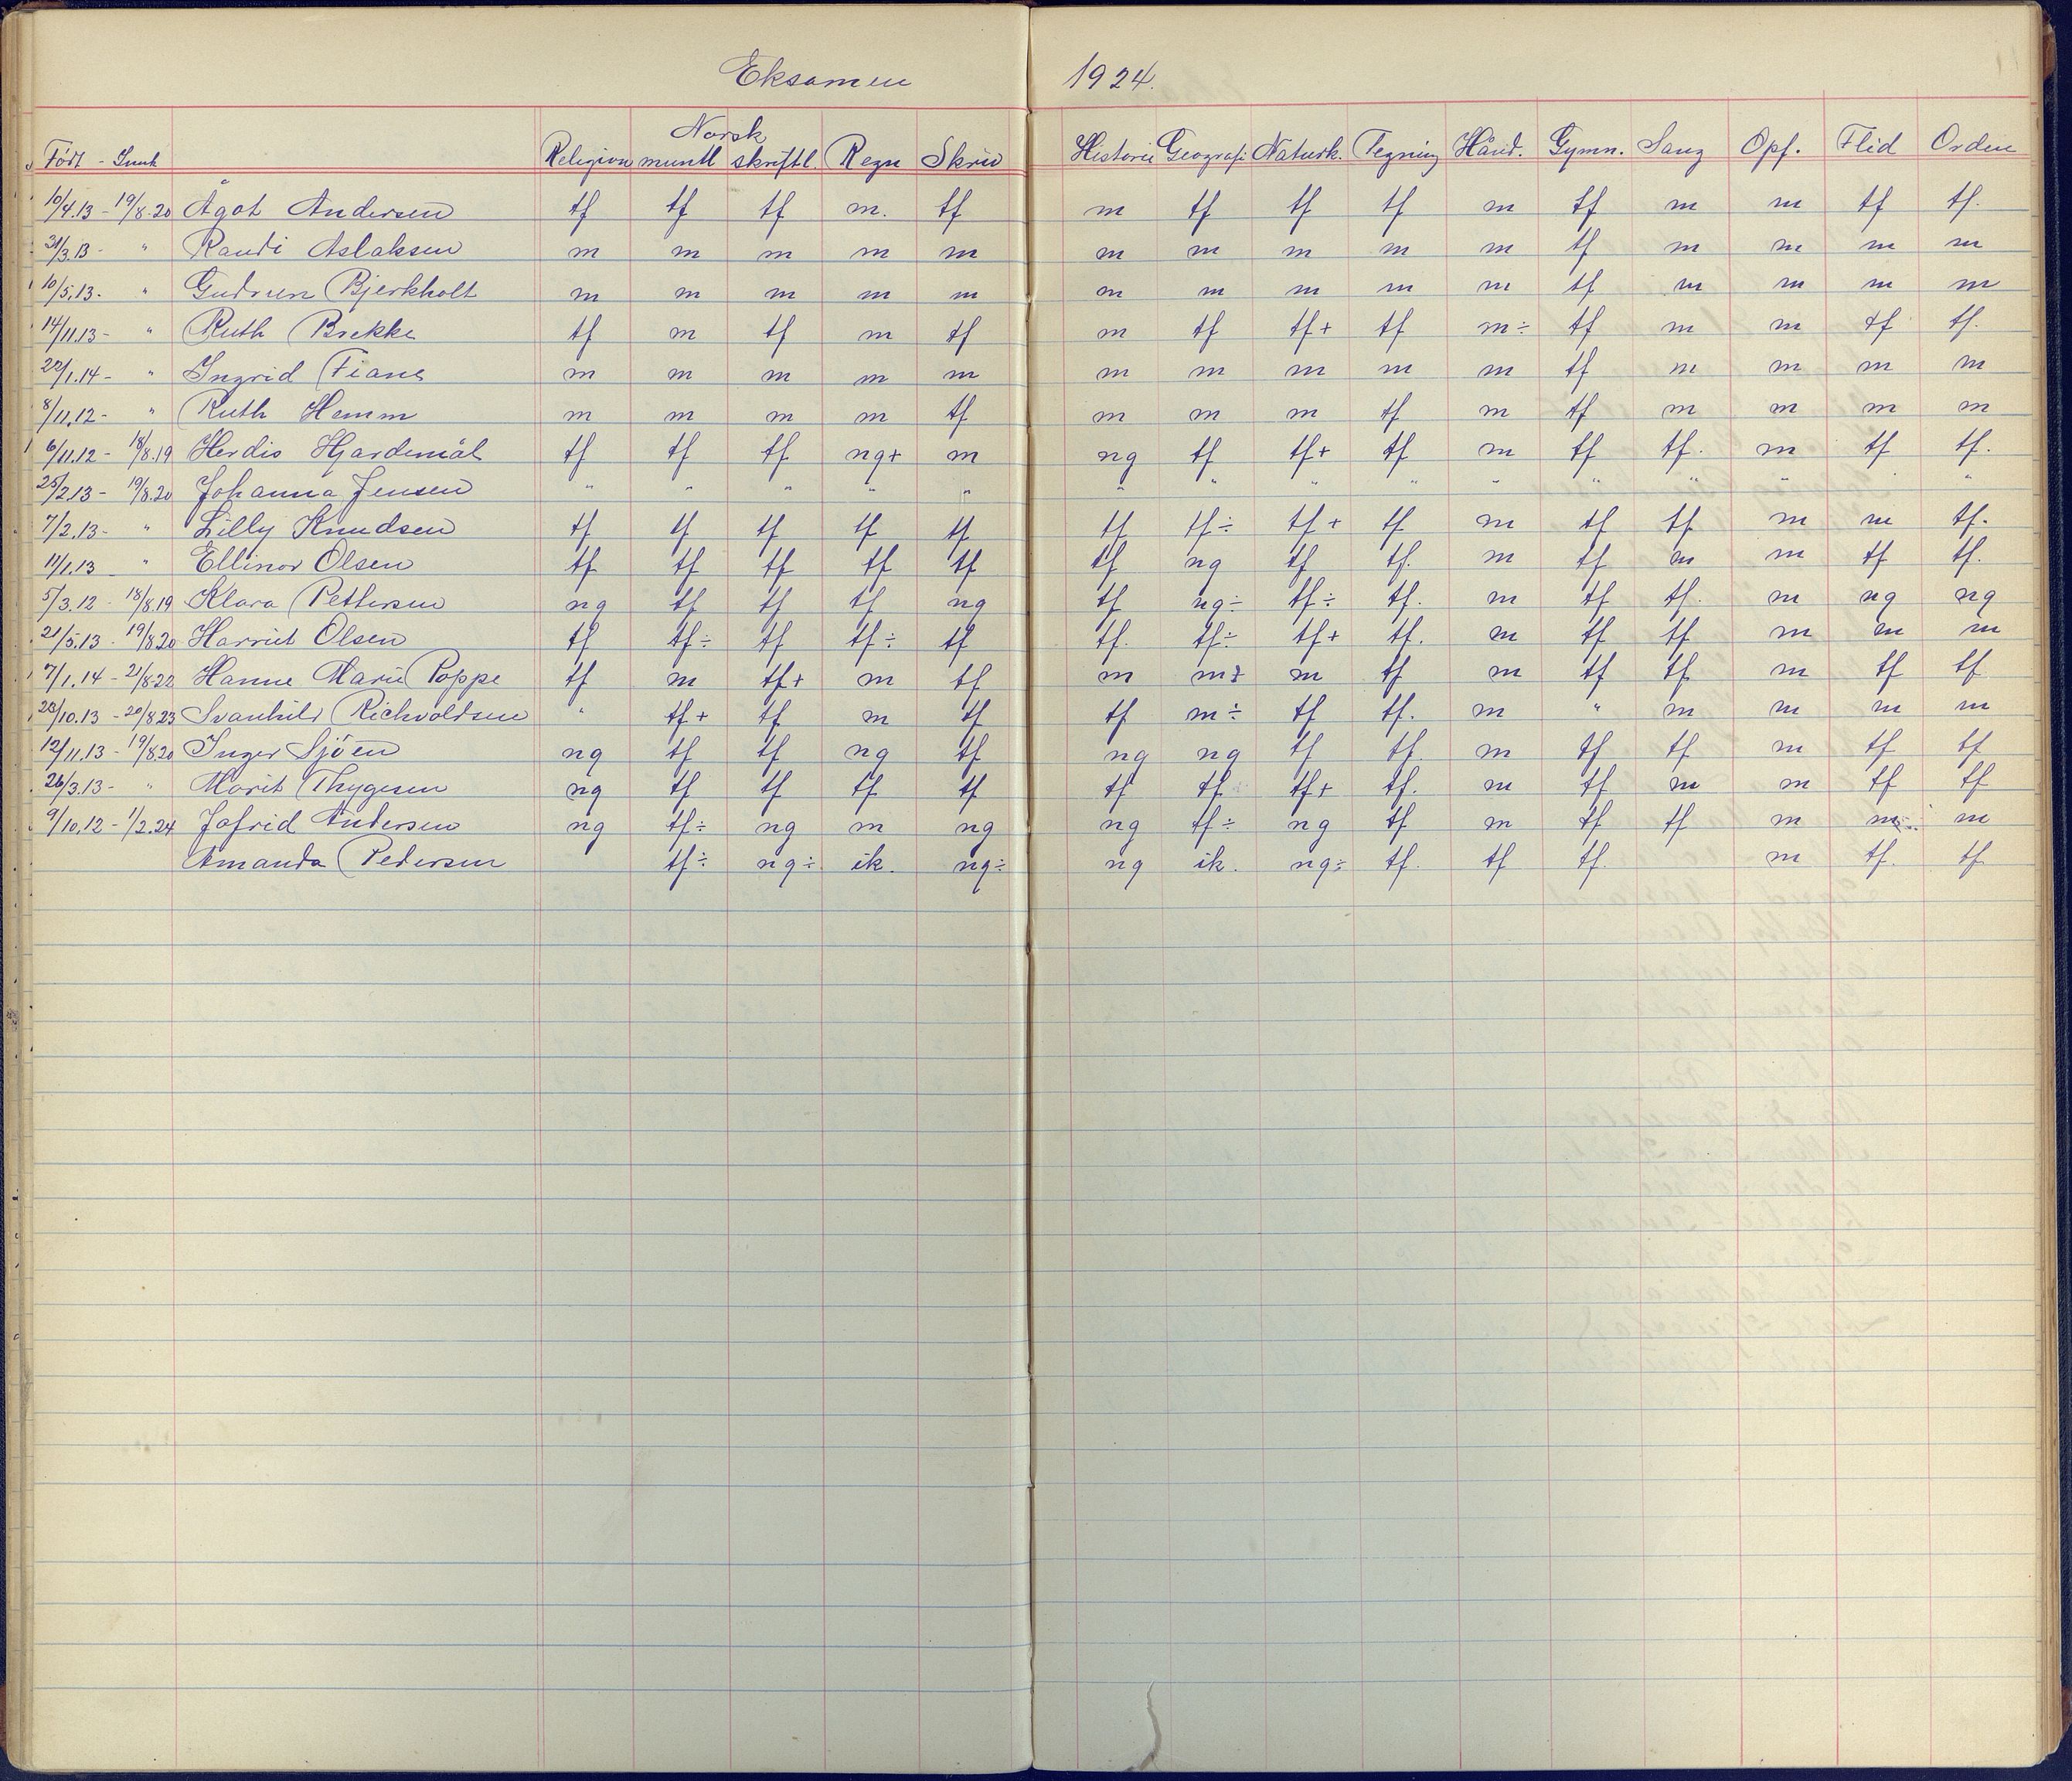 Eksamen 1924.
Norsk
Født - Innk Religion muntl skriftl. Regn Skriv Historie Geografi Naturk. Tegning Hånd. Gymn. Sang Opf. Flid Orden
10/4.13 - 19/8.20 Ågot Andersen tf tf tf m. tf m tf tf tf m tf m m tf tf.
31/3.13 - " Randi Aslaksen m m m m m m m m m m tf m m m m
10/5.13. " Gudrun Bjerkholt m m m m m m m m m m tf m m m m
14/11.13 - " Ruth Brekke tf m tf m tf m tf tf+ tf m÷ tf m m tf tf.
22/1.14 - " Ingrid Fiane m m m m m m m m m m tf m m m m
8/11.12 - " Ruth Hamm m m m m tf m m m tf m tf m m m m
6/11.12 - 18/8.19 Herdis Hjardemål tf tf tf ng+ m ng tf tf+ tf m tf tf. m tf tf.
25/2.13 - 19/8.20 Johanna Jensen " " " " " " " " " " " " " " "
7/2.13 - " Lilly Knudsen tf tf tf tf tf tf tf÷ tf+ tf m tf tf m m tf.
11/1.13 " Ellinor Olsen tf tf tf tf tf tf ng tf tf. m tf m m tf tf.
5/3.12 18/8.19 Klara Pettersen ng tf tf tf ng tf ng÷ tf÷ tf. m tf tf. m ng ng
21/5.13 - 19/8.20 Harriet Olsen tf tf÷ tf tf÷ tf tf. tf÷ tf+ tf. m tf tf m m m
7/1.14 - 21/8.22 Hanne Marie Poppe tf m tf+ m tf m m+ m tf m tf tf m tf tf
28/10.13 - 20/8.23 Svanhild Richvoldsen " tf+ tf m tf tf m÷ tf tf. m " m m m m
12/11.13 - 19/8.20 Inger Sjöen ng tf tf ng tf ng ng tf tf. m tf tf m tf tf
26/3.13 - " Marit Thygesen ng tf tf tf tf tf tf tf+ tf. m tf m m tf tf
9/10.12 - 1/2.24 Jofrid Andersen ng tf÷ ng m ng ng tf÷ ng tf m tf tf m m÷ m
Amanda Pedersen tf÷ ng÷ ik. ng÷ ng ik. ng÷ tf. tf tf. m tf. tf